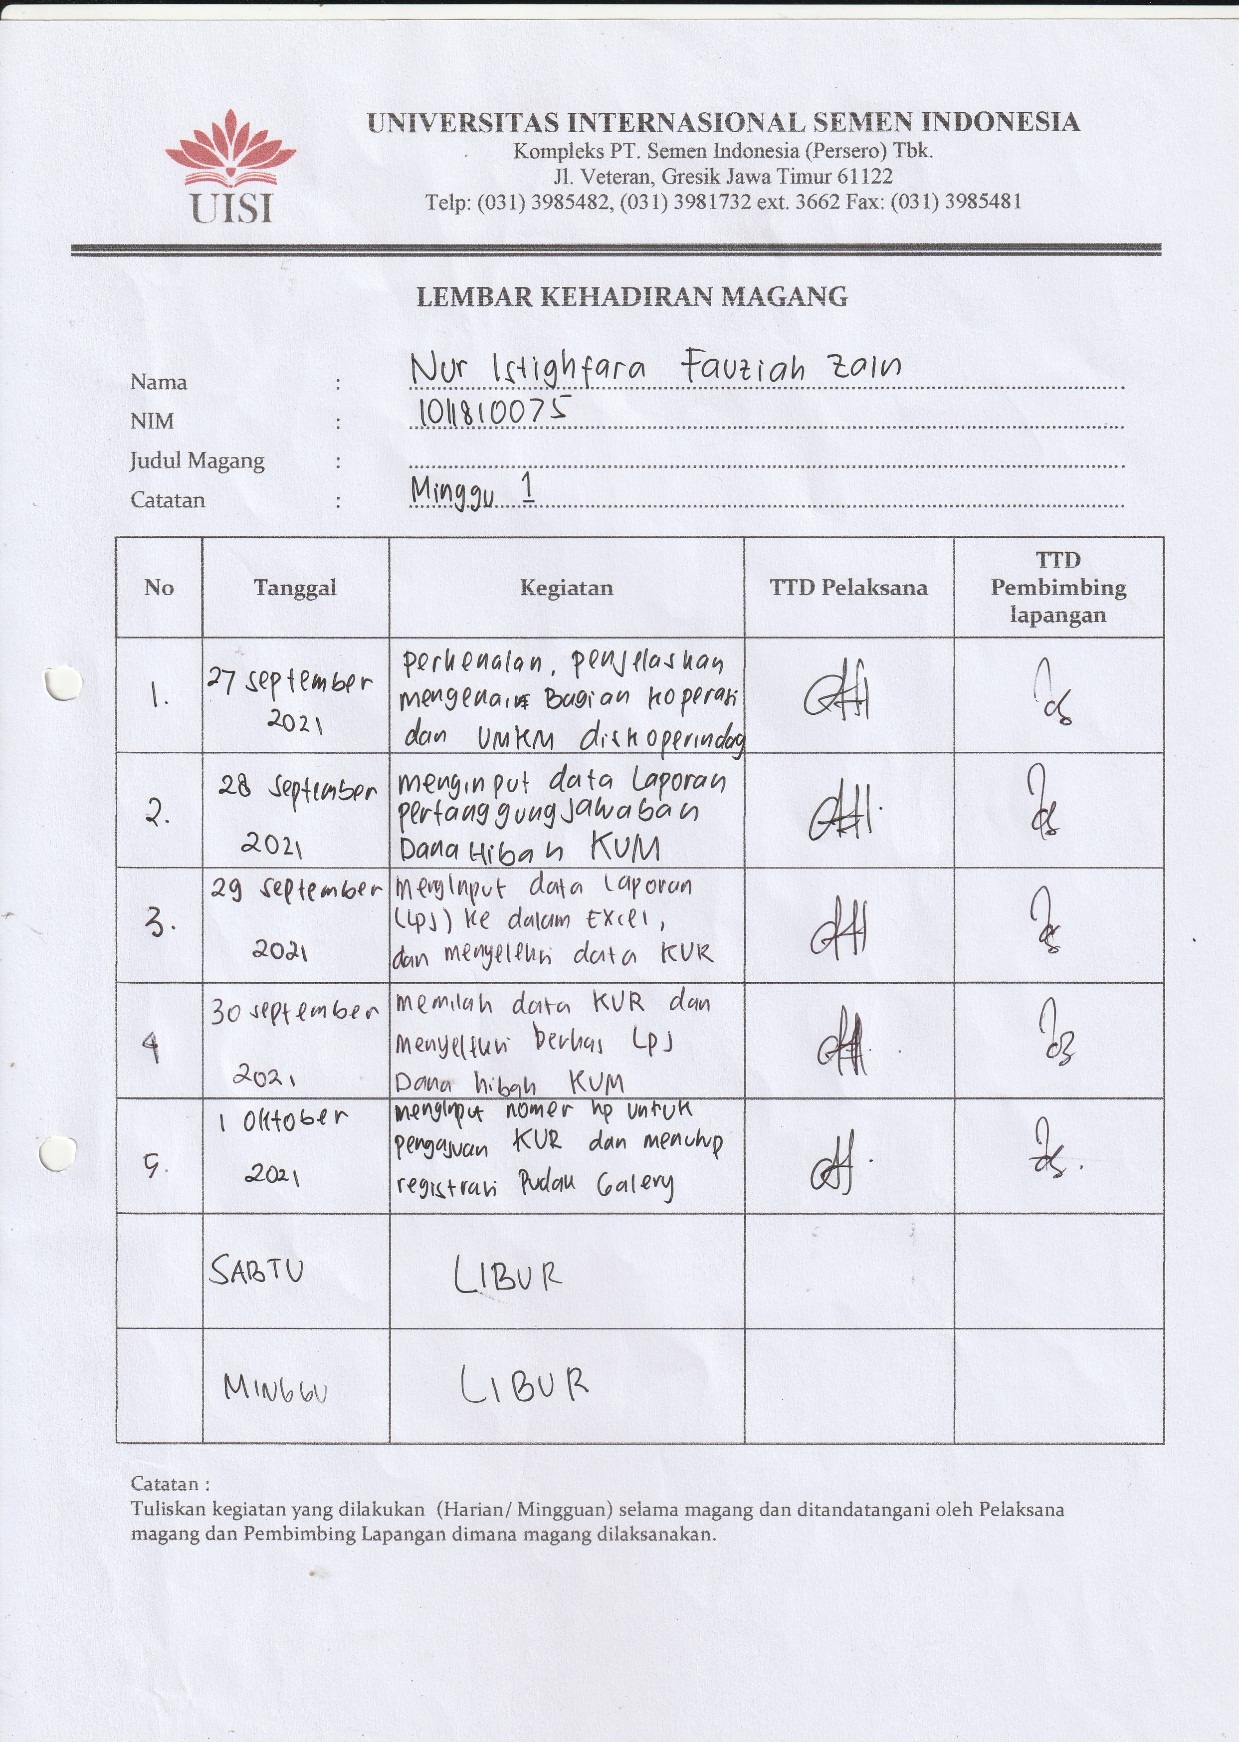 UISI
UNIVERSITAS INTERNASIONAL SEMEN INDONESIA
Kompleks PT. Semen Indonesia (Persero) Tbk.
Jl. Veteran, Gresik Jawa Timur 61122
Telp: (031) 3985482, (031) 3981732 ext. 3662 Fax: (031) 3985481
LEMBAR KEHADIRAN MAGANG
Nama : Nur Istighfara Fauziah Zain
NIM : 1011810075
Judul Magang :
Catatan : Minggu 1
No Tanggal Kegiatan TTD Pelaksana TTD Pembimbing lapangan
1. 27 september 2021
perkenalan, penjelaskan
mengenai Bagian koperasi
dan UMKM diskoperindag
2. 28 september 2021
menginput data Laporan
pertanggungjawaban
Dana Hibah KUM
3. 29 september 2021
menginput data laporan
(Lpj) ke dalam Excel,
dan menyeleksi data KUR
4 30 september 2021
memilah data KUR dan
menyeleksi berkas Lpj
Dana hibah KUM
5. 1 Oktober 2021
menginput nomer hp untuk
pengajuan KUR dan menutup
registrasi Pudak Galery
SABTU LIBUR
MINGGU LIBUR
Catatan :
Tuliskan kegiatan yang dilakukan (Harian/ Mingguan) selama magang dan ditandatangani oleh Pelaksana
magang dan Pembimbing Lapangan dimana magang dilaksanakan.